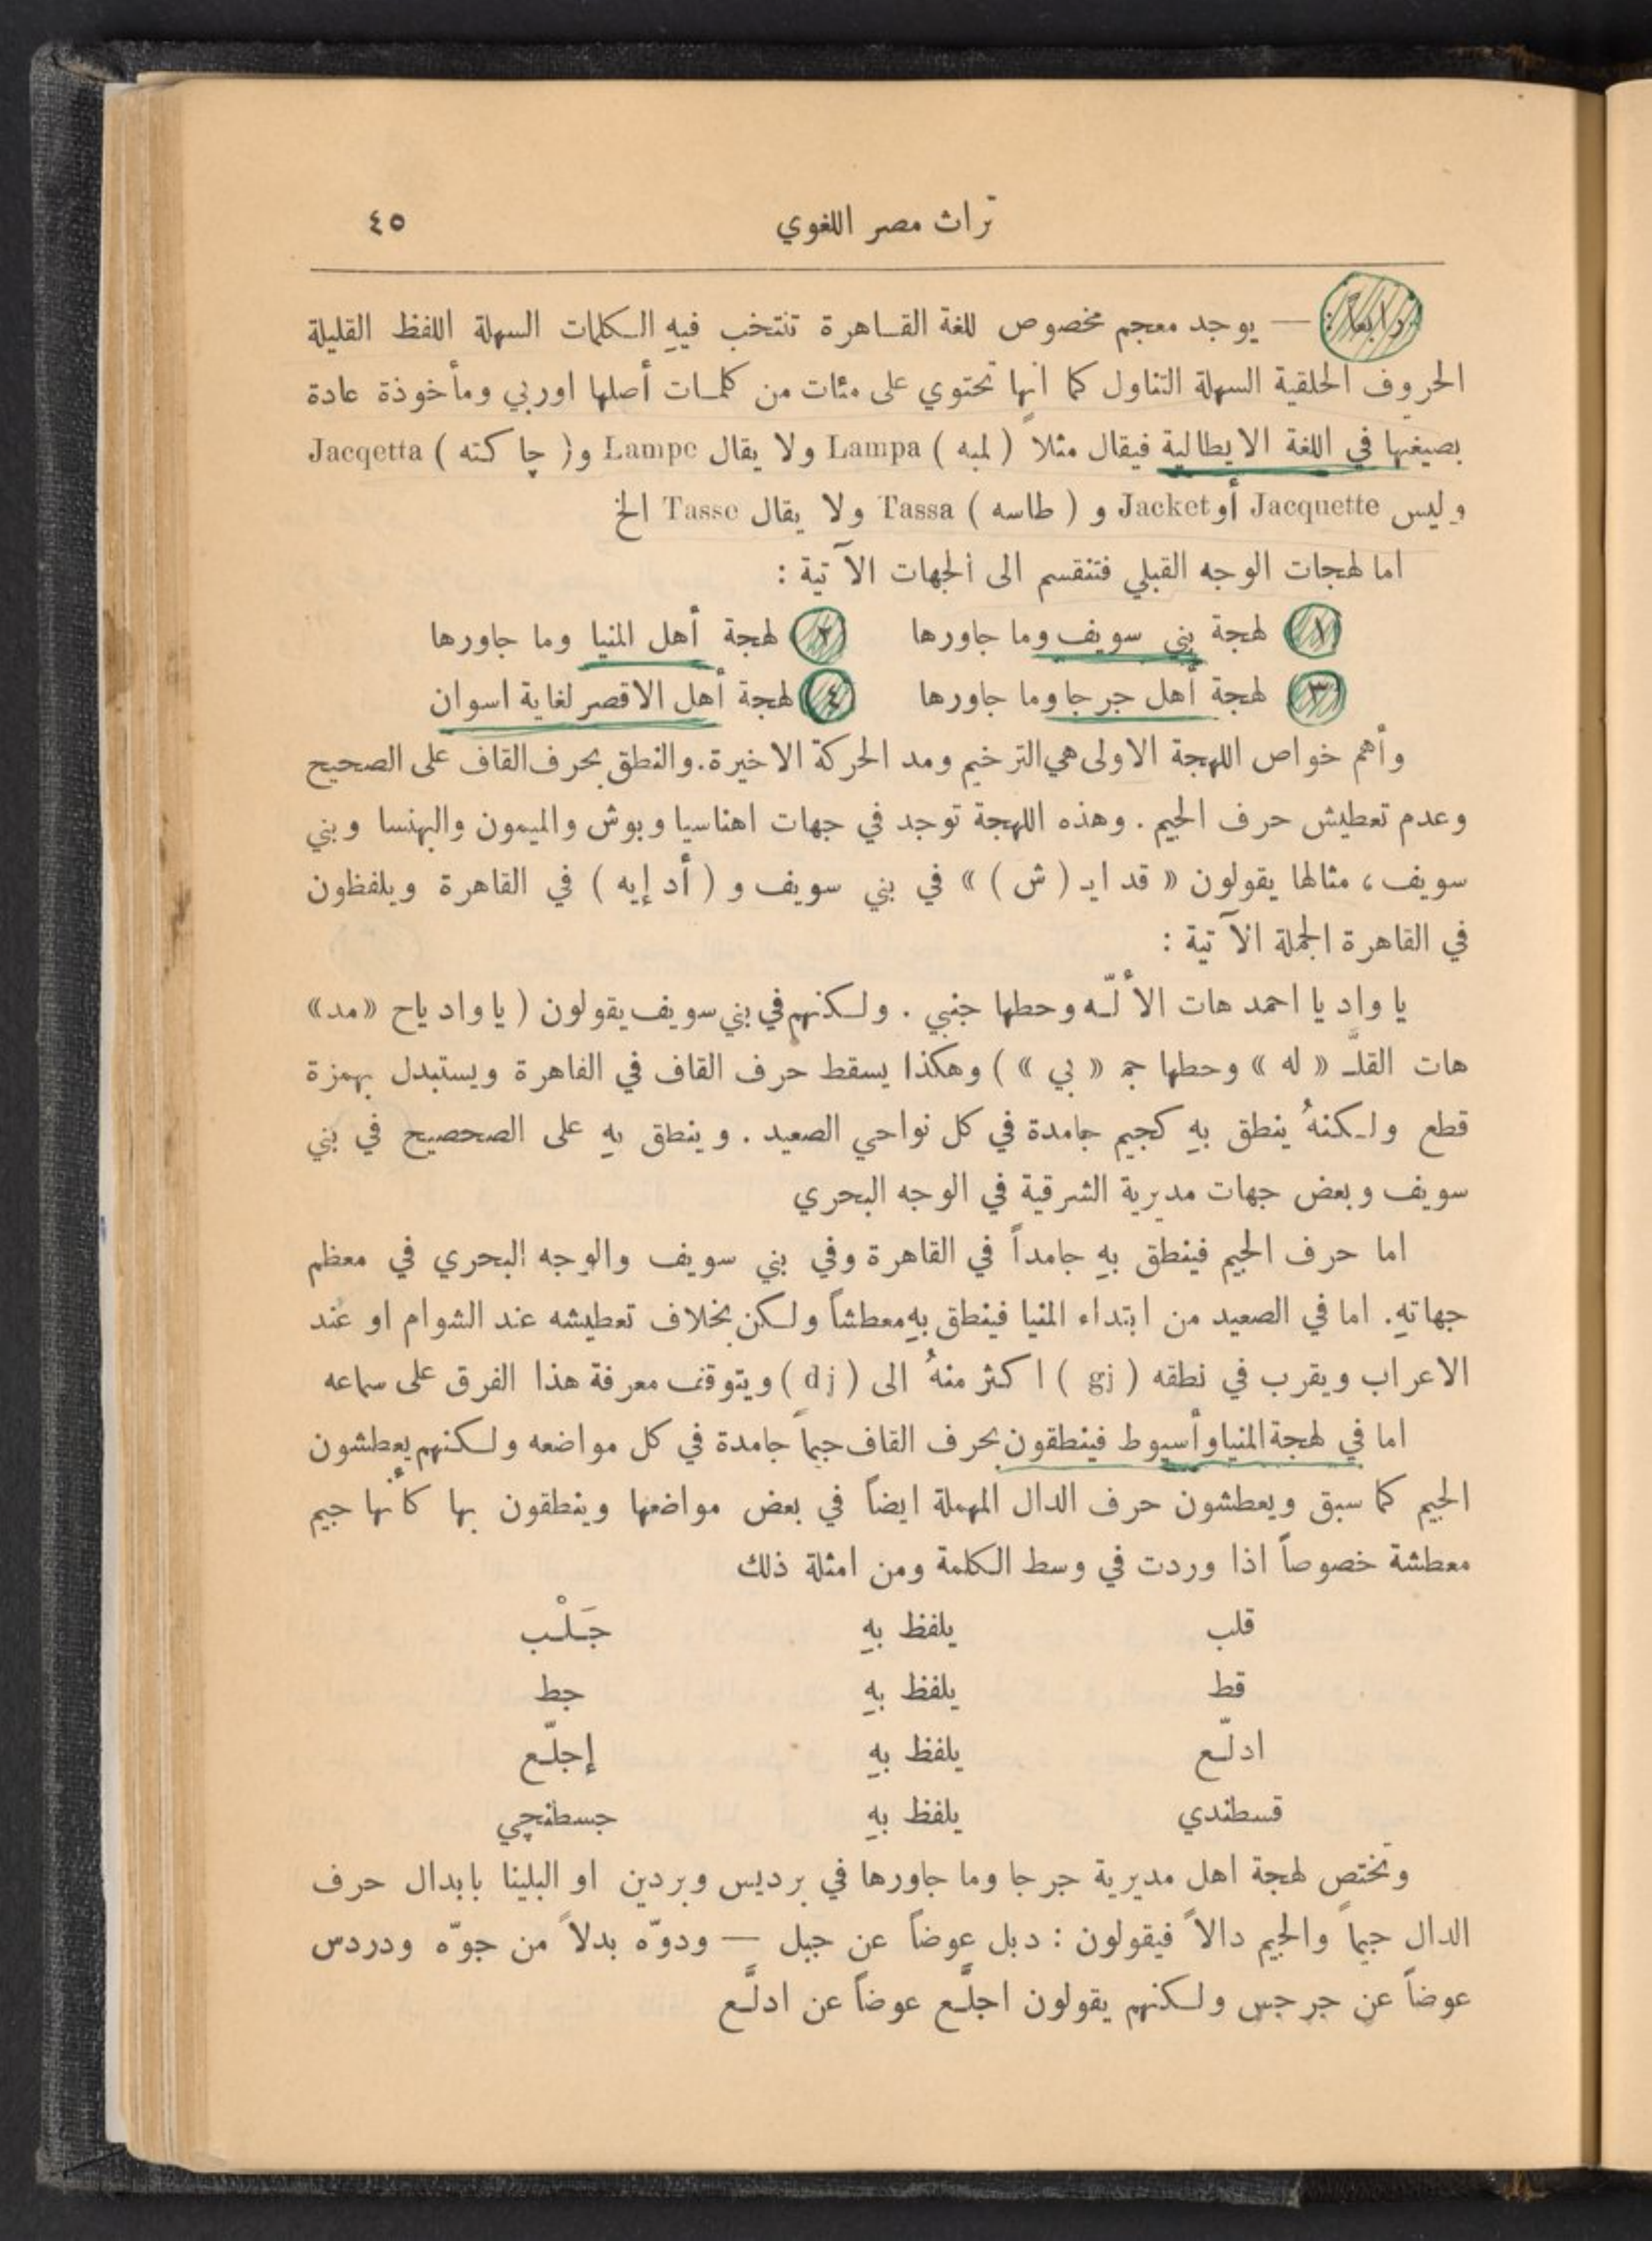 تراث مصر اللغوي ٤٥
رابعاً : — يوجد معجم مخصوص للغة القاهرة تنتخب فيهِ الكلمات السهلة اللفظ القليلة
الحروف الحلقية السهلة التناول كما انها تحتوي على مئات من كلمات أصلها اوربي ومأخوذة عادة
بصيغتها في اللغة الايطالية فيقال مثلاً ( لمبه ) Lampa ولا يقال Lampe و( چاكته ) Jacqetta
وليس Jacquette أو Jacket و ( طاسه ) Tassa ولا يقال Tasse الخ
اما لهجات الوجه القبلي فتنقسم الى الجهات الآتية :
١ لهجة بني سويف وما جاورها ٢ لهجة أهل المنيا وما جاورها
٣ لهجة أهل جرجا وما جاورها ٤ لهجة أهل الاقصر لغاية اسوان
وأهم خواص اللهجة الاولى هي الترخيم ومد الحركة الاخيرة. والنطق بحرف القاف على الصحيح
وعدم تعطيش حرف الجيم . وهذه اللهجة توجد في جهات اهناسيا وبوش والميمون والبهنسا وبني
سويف ، مثالها يقولون « قد ايـ ( ش ) » في بني سويف و ( أد إيه ) في القاهرة ويلفظون
في القاهرة الجملة الآتية :
يا واد يا احمد هات الألّـه وحطها جنبي . ولكنهم في بني سويف يقولون ( يا واد ياح «مد»
هات القلَّـ « له » وحطها جمـ « بي » ) وهكذا يسقط حرف القاف في القاهرة ويستبدل بهمزة
قطع ولكنهُ ينطق بهِ كجيم جامدة في كل نواحي الصعيد . وينطق بهِ على الصحصيح في بني
سويف وبعض جهات مديرية الشرقية في الوجه البحري
اما حرف الجيم فينطق بهِ جامداً في القاهرة وفي بني سويف والوجه البحري في معظم
جهاتهِ. اما في الصعيد من ابتداء المنيا فينطق بهِ معطشاً ولكن بخلاف تعطيشه عند الشوام او عند
الاعراب ويقرب في نطقه ( gj ) اكثر منهُ الى ( dj ) ويتوقف معرفة هذا الفرق على سماعه
اما في لهجة المنيا وأسيوط فينطقون بحرف القاف جيماً جامدة في كل مواضعه ولكنهم يعطشون
الجيم كما سبق ويعطشون حرف الدال المهملة ايضاً في بعض مواضعها وينطقون بها كأنها جيم
معطشة خصوصاً اذا وردت في وسط الكلمة ومن امثلة ذلك
قلب يلفظ بهِ جَلْب
قط يلفظ بهِ جط
ادلّع يلفظ بهِ إجلّع
قسطندي يلفظ بهِ جسطنچي
وتختص لهجة اهل مديرية جرجا وما جاورها في برديس وبردين او البلينا بابدال حرف
الدال جيماً والجيم دالاً فيقولون : دبل عوضاً عن جبل — ودوّه بدلاً من جوّه ودردس
عوضاً عن جرجس ولكنهم يقولون اجلَّع عوضاً عن ادلَّع